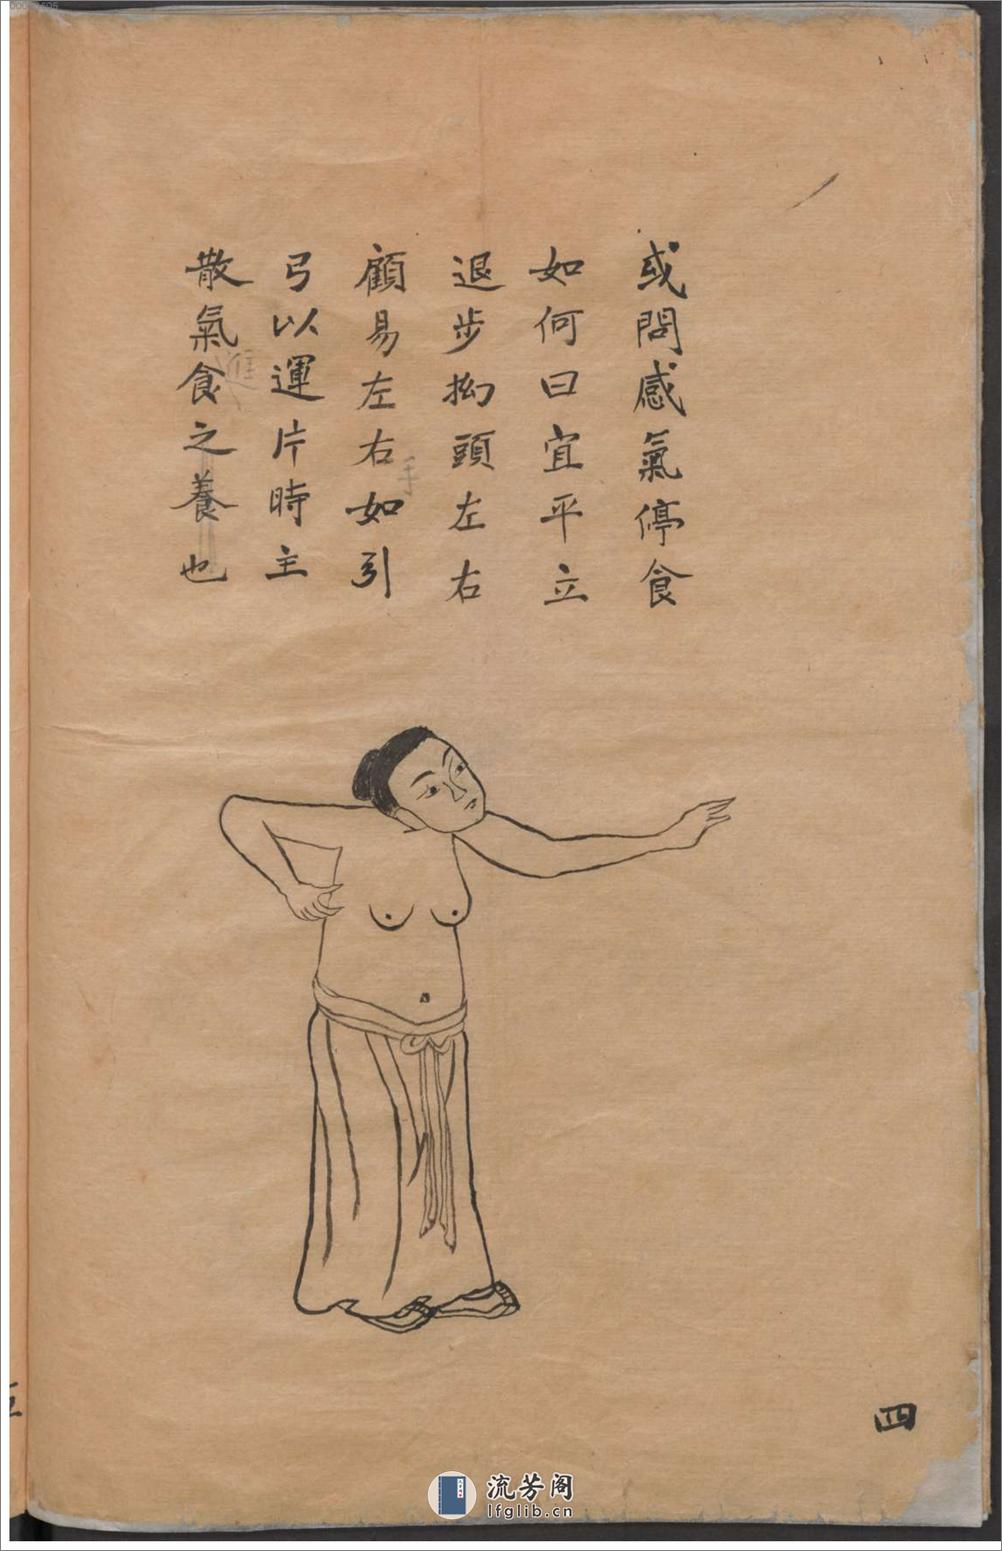 或問感氣停食
如何曰宜平立
退步拗頭左右
顧易左右如引
弓以運片時主
散氣食之養也
四
流芳阁
lfglib.cn